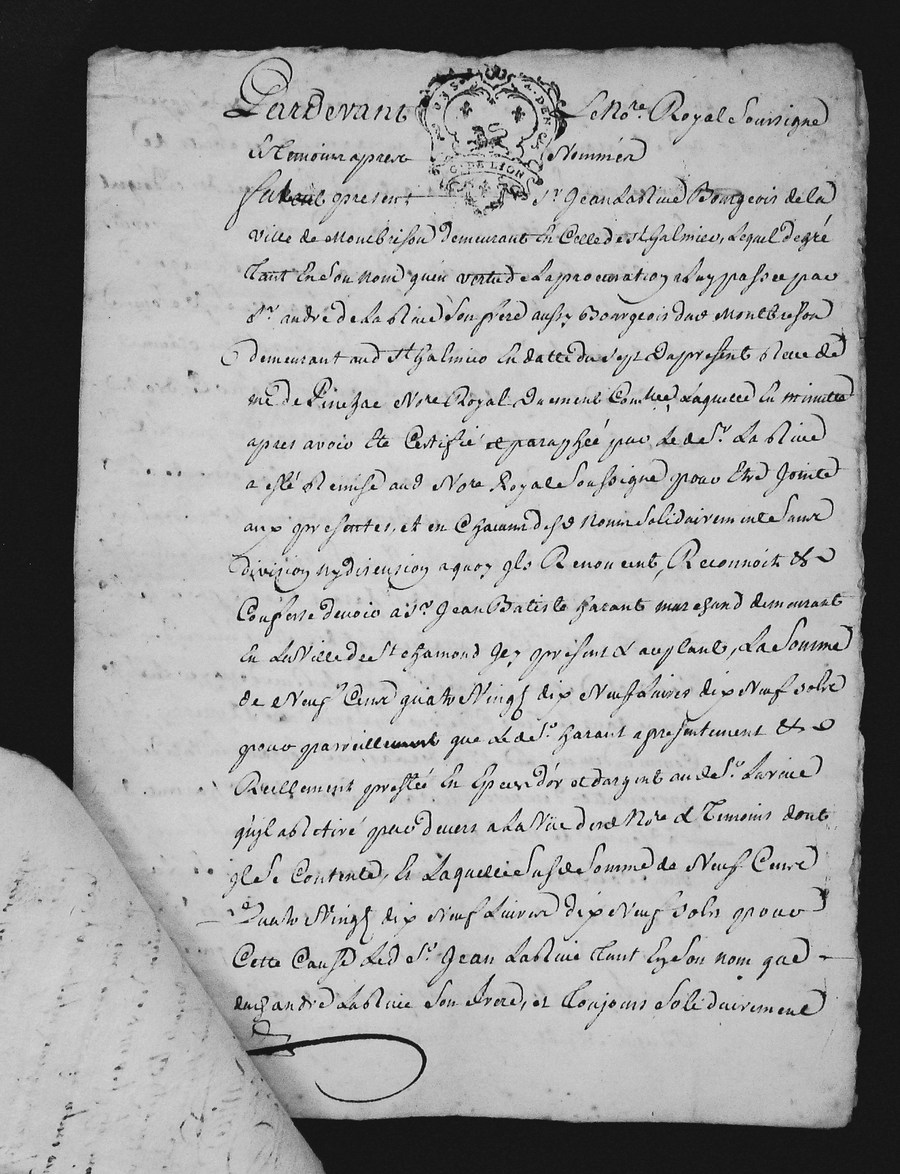 Pardevant Le No.re Royal Soussigne
et Temoins apres Nommés
fut present S.r Jean Larivie Bourgeois de la
ville de Montbrison demeurant En Celle de St Galmier, Lequel de gré
Tant En Son Nom qu'en vertu de La procuration a Luy passée par
S.r andré de La Rivie Son frere aussy Bourgeois dud Montbrison
demeurant aud St Galmier En datte du Sept du present Receüe
M.e de Pinchac No.re Royal Duement Con.llee Laquelle En minutte
apres avoir Eté Certifié et paraphée par Led S.r La Rivie
a esté Remise aud No.re Royal Soussigné pour Etre Jointe
aux presentes, et en Chacun desd Noms Solidairement Sans
division ny discusion a quoy yls Renoncent, Reconnoit &
Confesse devoir a S.r Jean Batiste harant marchand demeurant
En La Ville de St chamond Jcy present & aceptant, La Somme
de Neuf Cens quatre Vingt dix Neuf Livres dix Neuf Sols
pour pareille que Led S.r harant a presentement &
Reellement prestée En Especes d'or et d'argent aud S.r Larivie
qu'yl a Retiré par devers a La Vüe desd No.re & Temoins dont
yl Se Contente, Et Laquelle Susd Somme de Neuf Cens
Quatre Vingt dix Neuf Livres dix Neuf Sols pour
Cette Cause Led S.r Jean Larivie Tant En Son nom que
dud andré Larivie Son frere, et Toujours Solidairement
G. DE LION